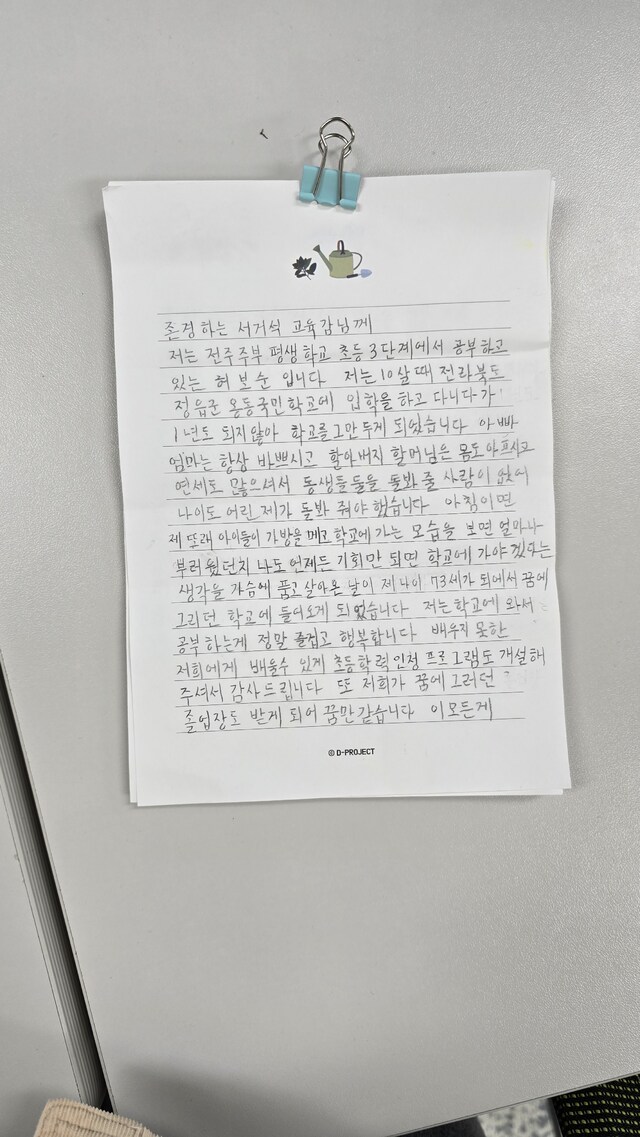 존경하는 서거석 교육감님께
저는 전주주부 평생학교 초등3단계에서 공부하고
있는 허보순 입니다 저는 10살때 전라북도
정읍군 옹동국민학교에 입학을 하고 다니다가
1년도 되지않아 학교를 그만두게 되었습니다 아빠
엄마는 항상 바쁘시고 할아버지 할머님은 몸도아프시고
연세도 많으셔서 동생들둘을 돌봐 줄 사람이 없어
나이도 어린 제가 돌봐 줘야 했습니다 아침이면
제 또래 아이들이 가방을 메고 학교에 가는 모습을 보면 얼마나
부러웠던지 나도 언제든 기회만 되면 학교에 가야겠다는
생각을 가슴에 품고 살아온 날이 제 나이 73세가 되에서 꿈에
그리던 학교에 들어오게 되었습니다 저는 학교에 와서
공부하는게 정말 즐겁고 행복합니다 배우지 못한
저희에게 배울수 있게 초등학력인정 프로그램도 개설해
주셔서 감사드립니다 또 저희가 꿈에 그러던
졸업장도 받게 되어 꿈만같습니다 이모든게
© D-PROJECT